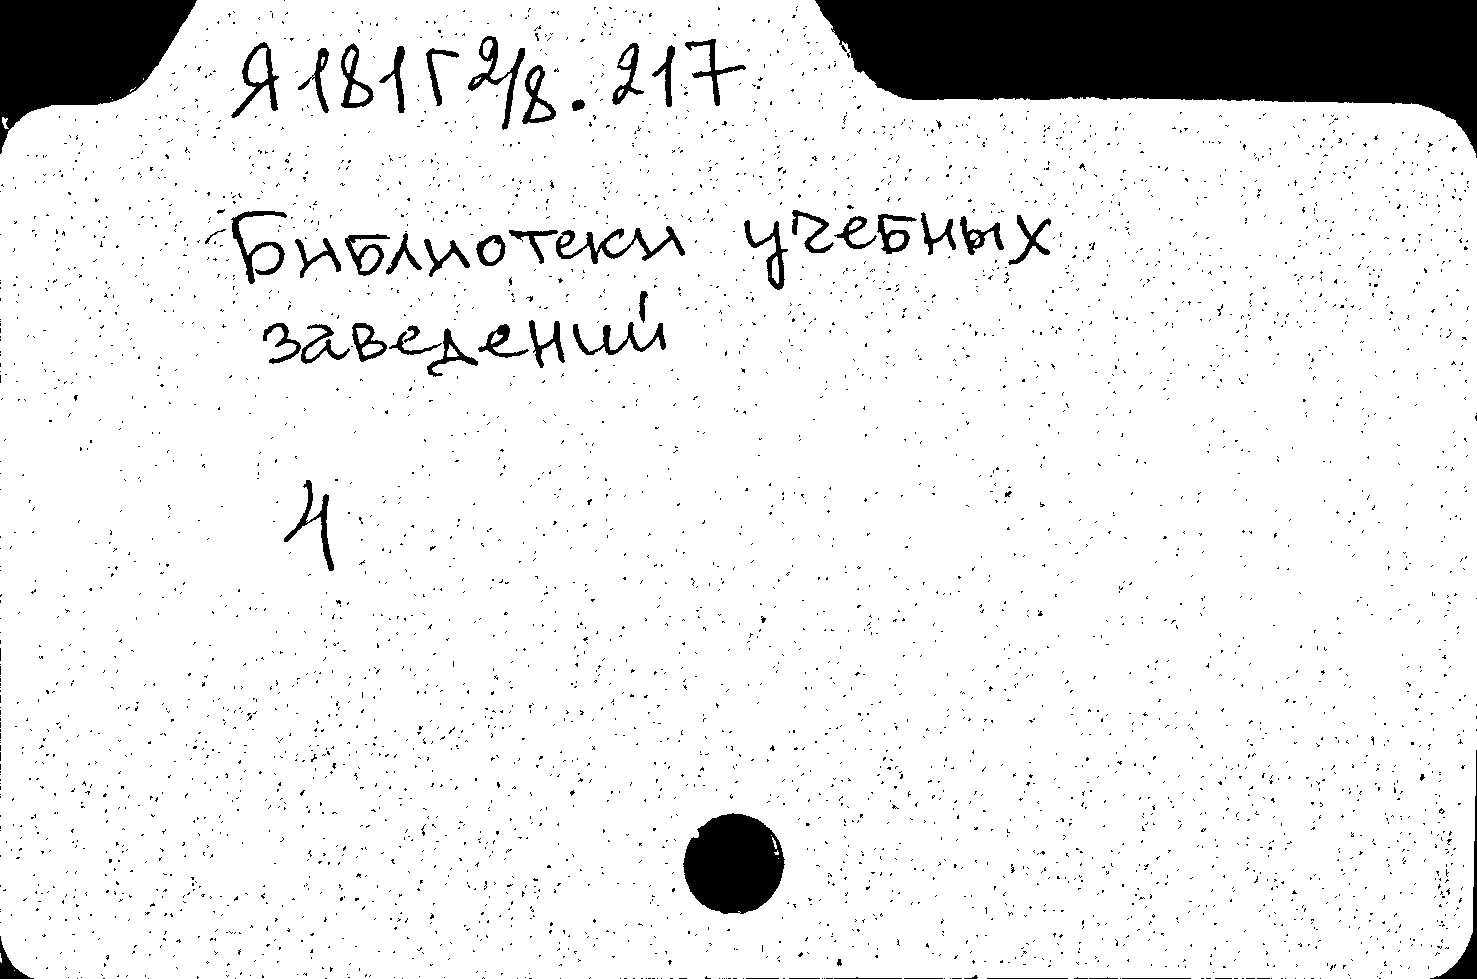 Я181Г2/8.217
Библиотеки учебных
заведений
4